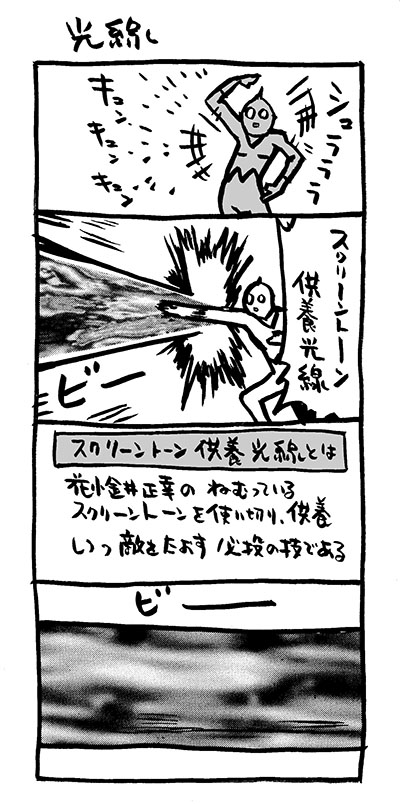 光線
シュラララ
キュン
キュン
キュン
スクリーントーン
供養光線
ビー
スクリーントーン供養光線とは
花小金井正幸の ねむっている
スクリーントーンを使い切り、供養
しつつ敵をたおす必殺の技である
ビー